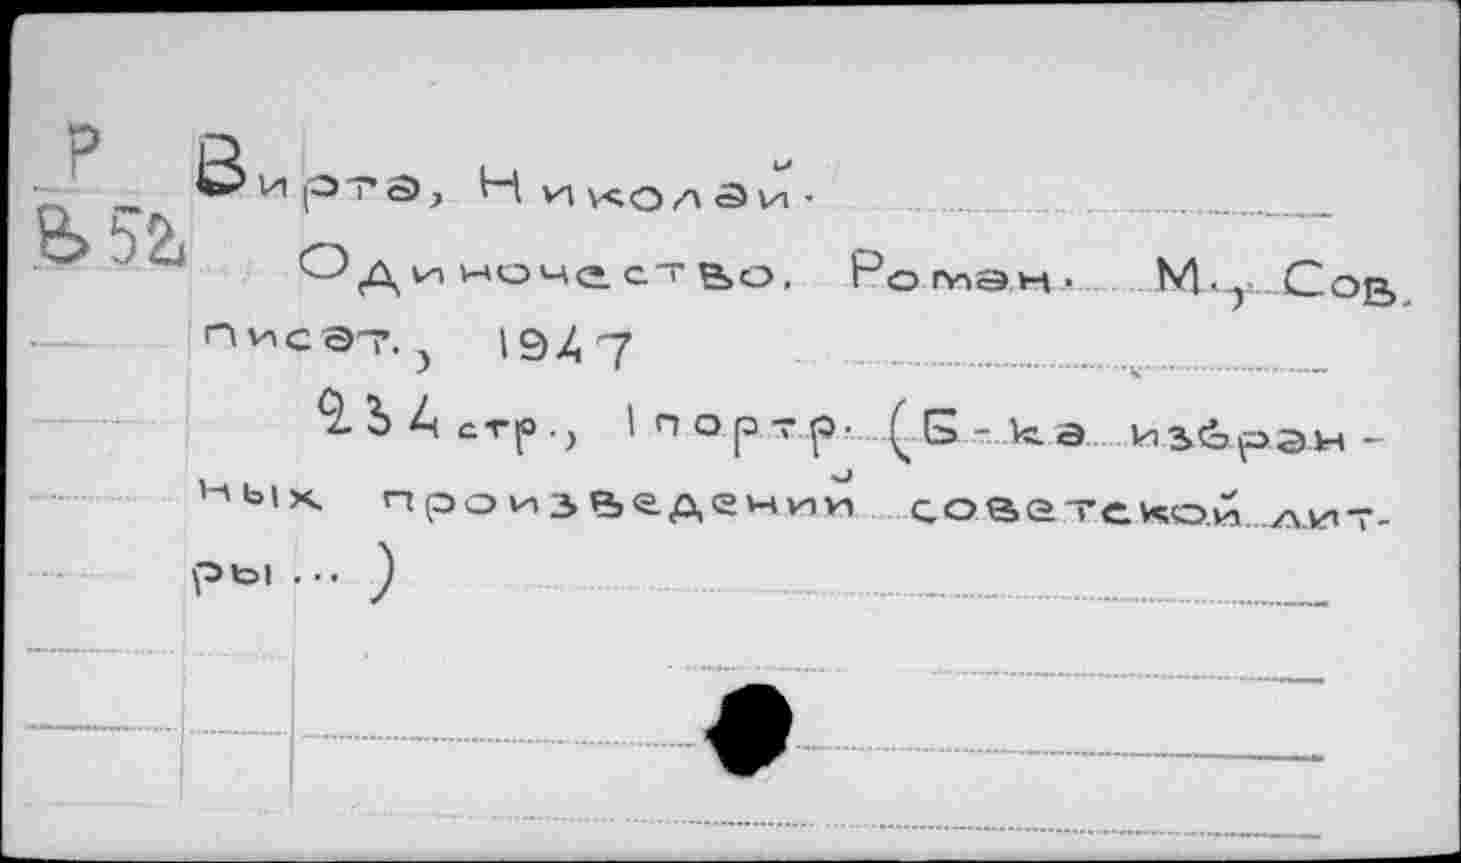 Р Вирта, Николай.
В52 Одиночество. Роман. М., Сов.
писат., 1947
234 стр., 1 портр. (Б-ка избран-
ных произведений советской лит-
ры ... )